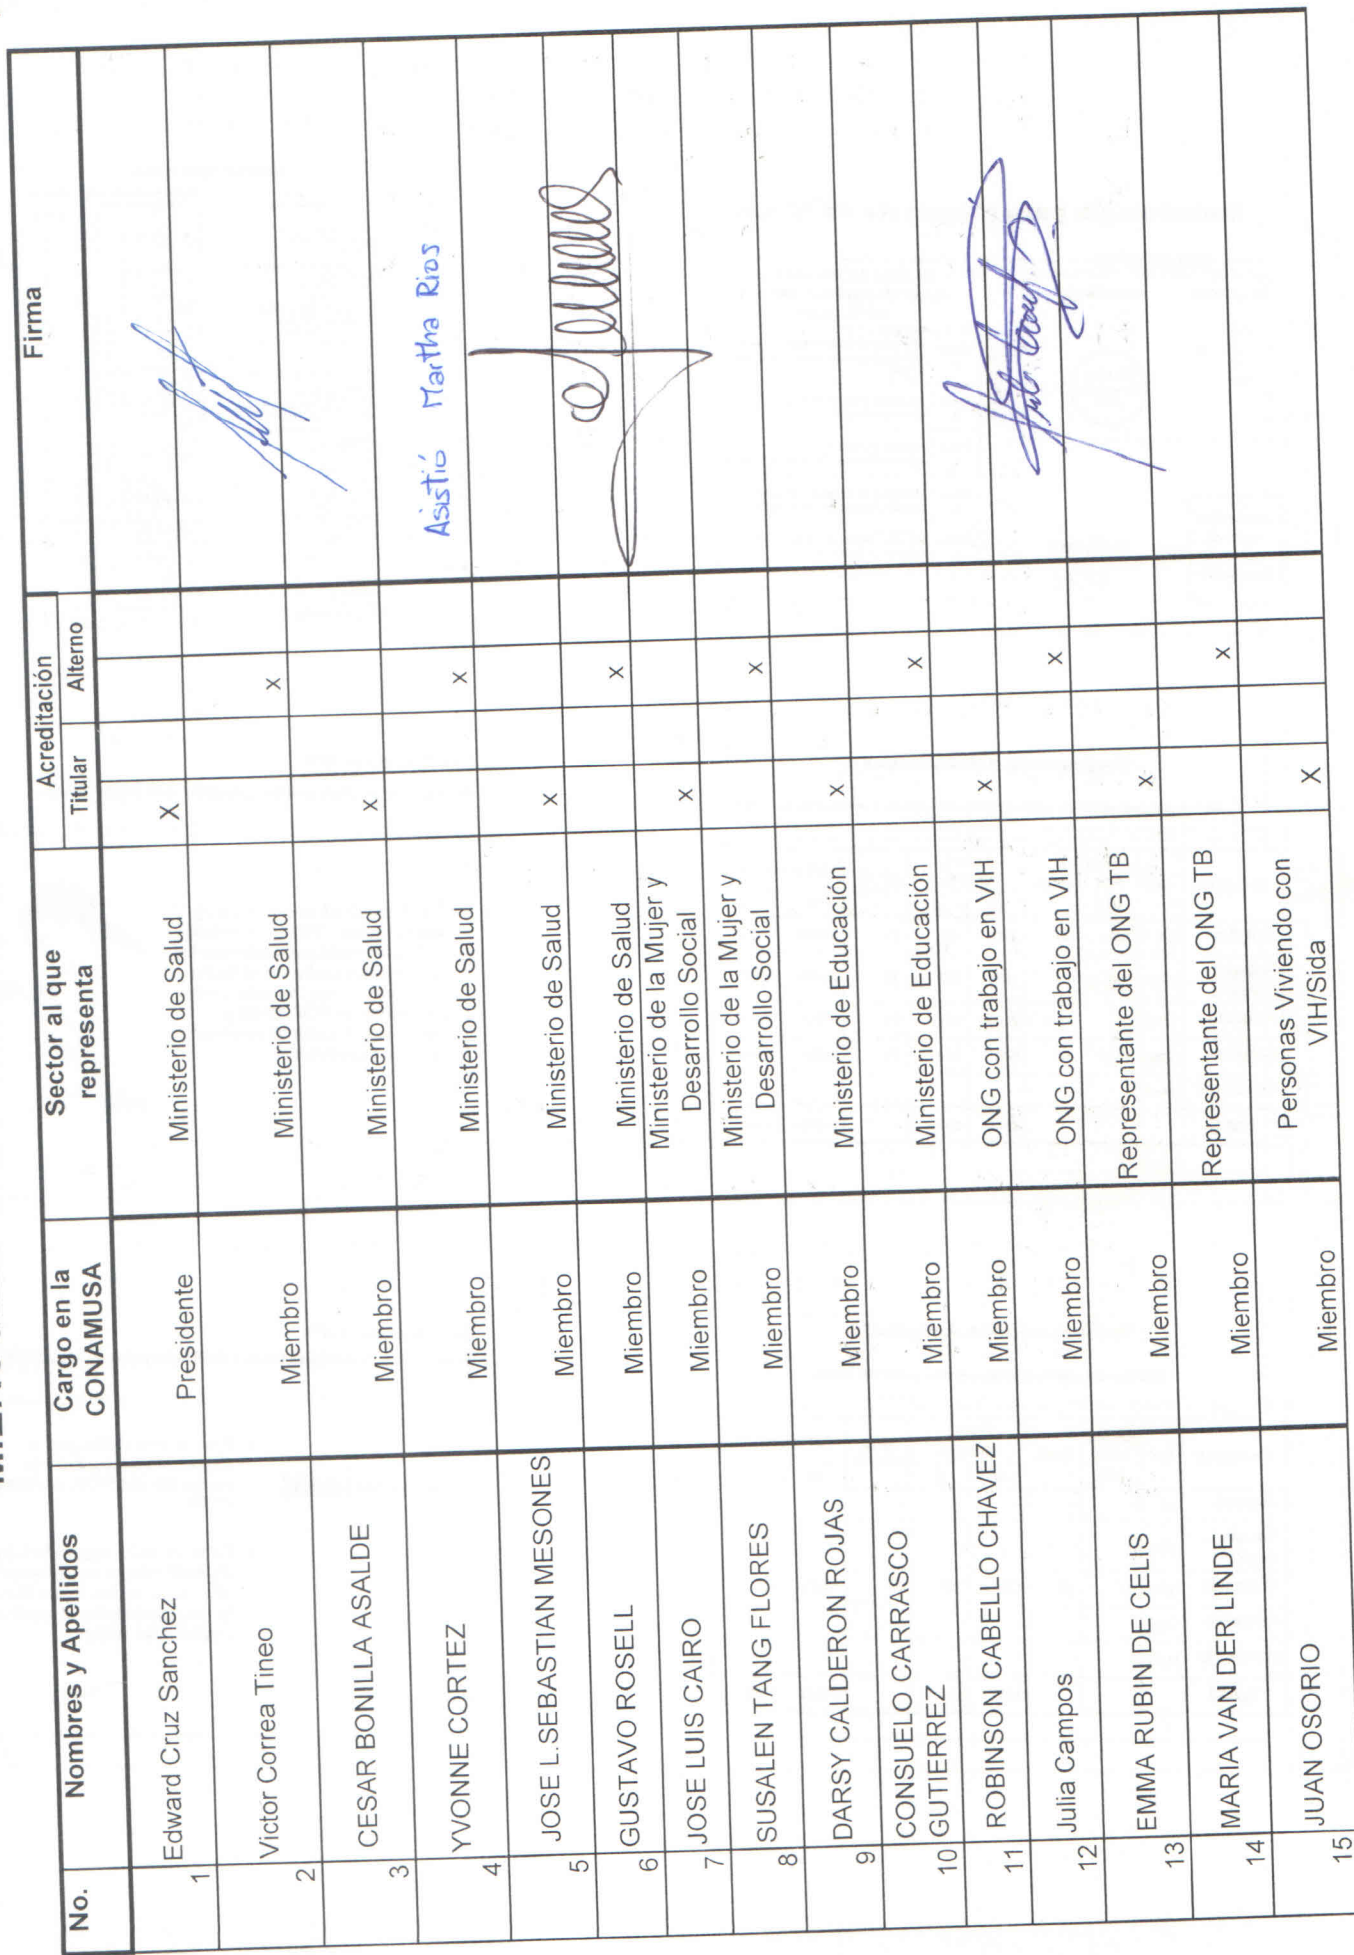 No. Nombres y Apellidos Cargo en la CONAMUSA Sector al que representa Acreditación Firma
Titular Alterno
1 Edward Cruz Sanchez Presidente Ministerio de Salud X
2 Victor Correa Tineo Miembro Ministerio de Salud X
3 CESAR BONILLA ASALDE Miembro Ministerio de Salud X
4 YVONNE CORTEZ Miembro Ministerio de Salud X Asistió Martha Rios
5 JOSE L.SEBASTIAN MESONES Miembro Ministerio de Salud X
6 GUSTAVO ROSELL Miembro Ministerio de Salud X
7 JOSE LUIS CAIRO Miembro Ministerio de la Mujer y Desarrollo Social X
8 SUSALEN TANG FLORES Miembro Ministerio de la Mujer y Desarrollo Social X
9 DARSY CALDERON ROJAS Miembro Ministerio de Educación X
10 CONSUELO CARRASCO GUTIERREZ Miembro Ministerio de Educación X
11 ROBINSON CABELLO CHAVEZ Miembro ONG con trabajo en VIH X
12 Julia Campos Miembro ONG con trabajo en VIH X
13 EMMA RUBIN DE CELIS Miembro Representante del ONG TB X
14 MARIA VAN DER LINDE Miembro Representante del ONG TB X
15 JUAN OSORIO Miembro Personas Viviendo con VIH/Sida X